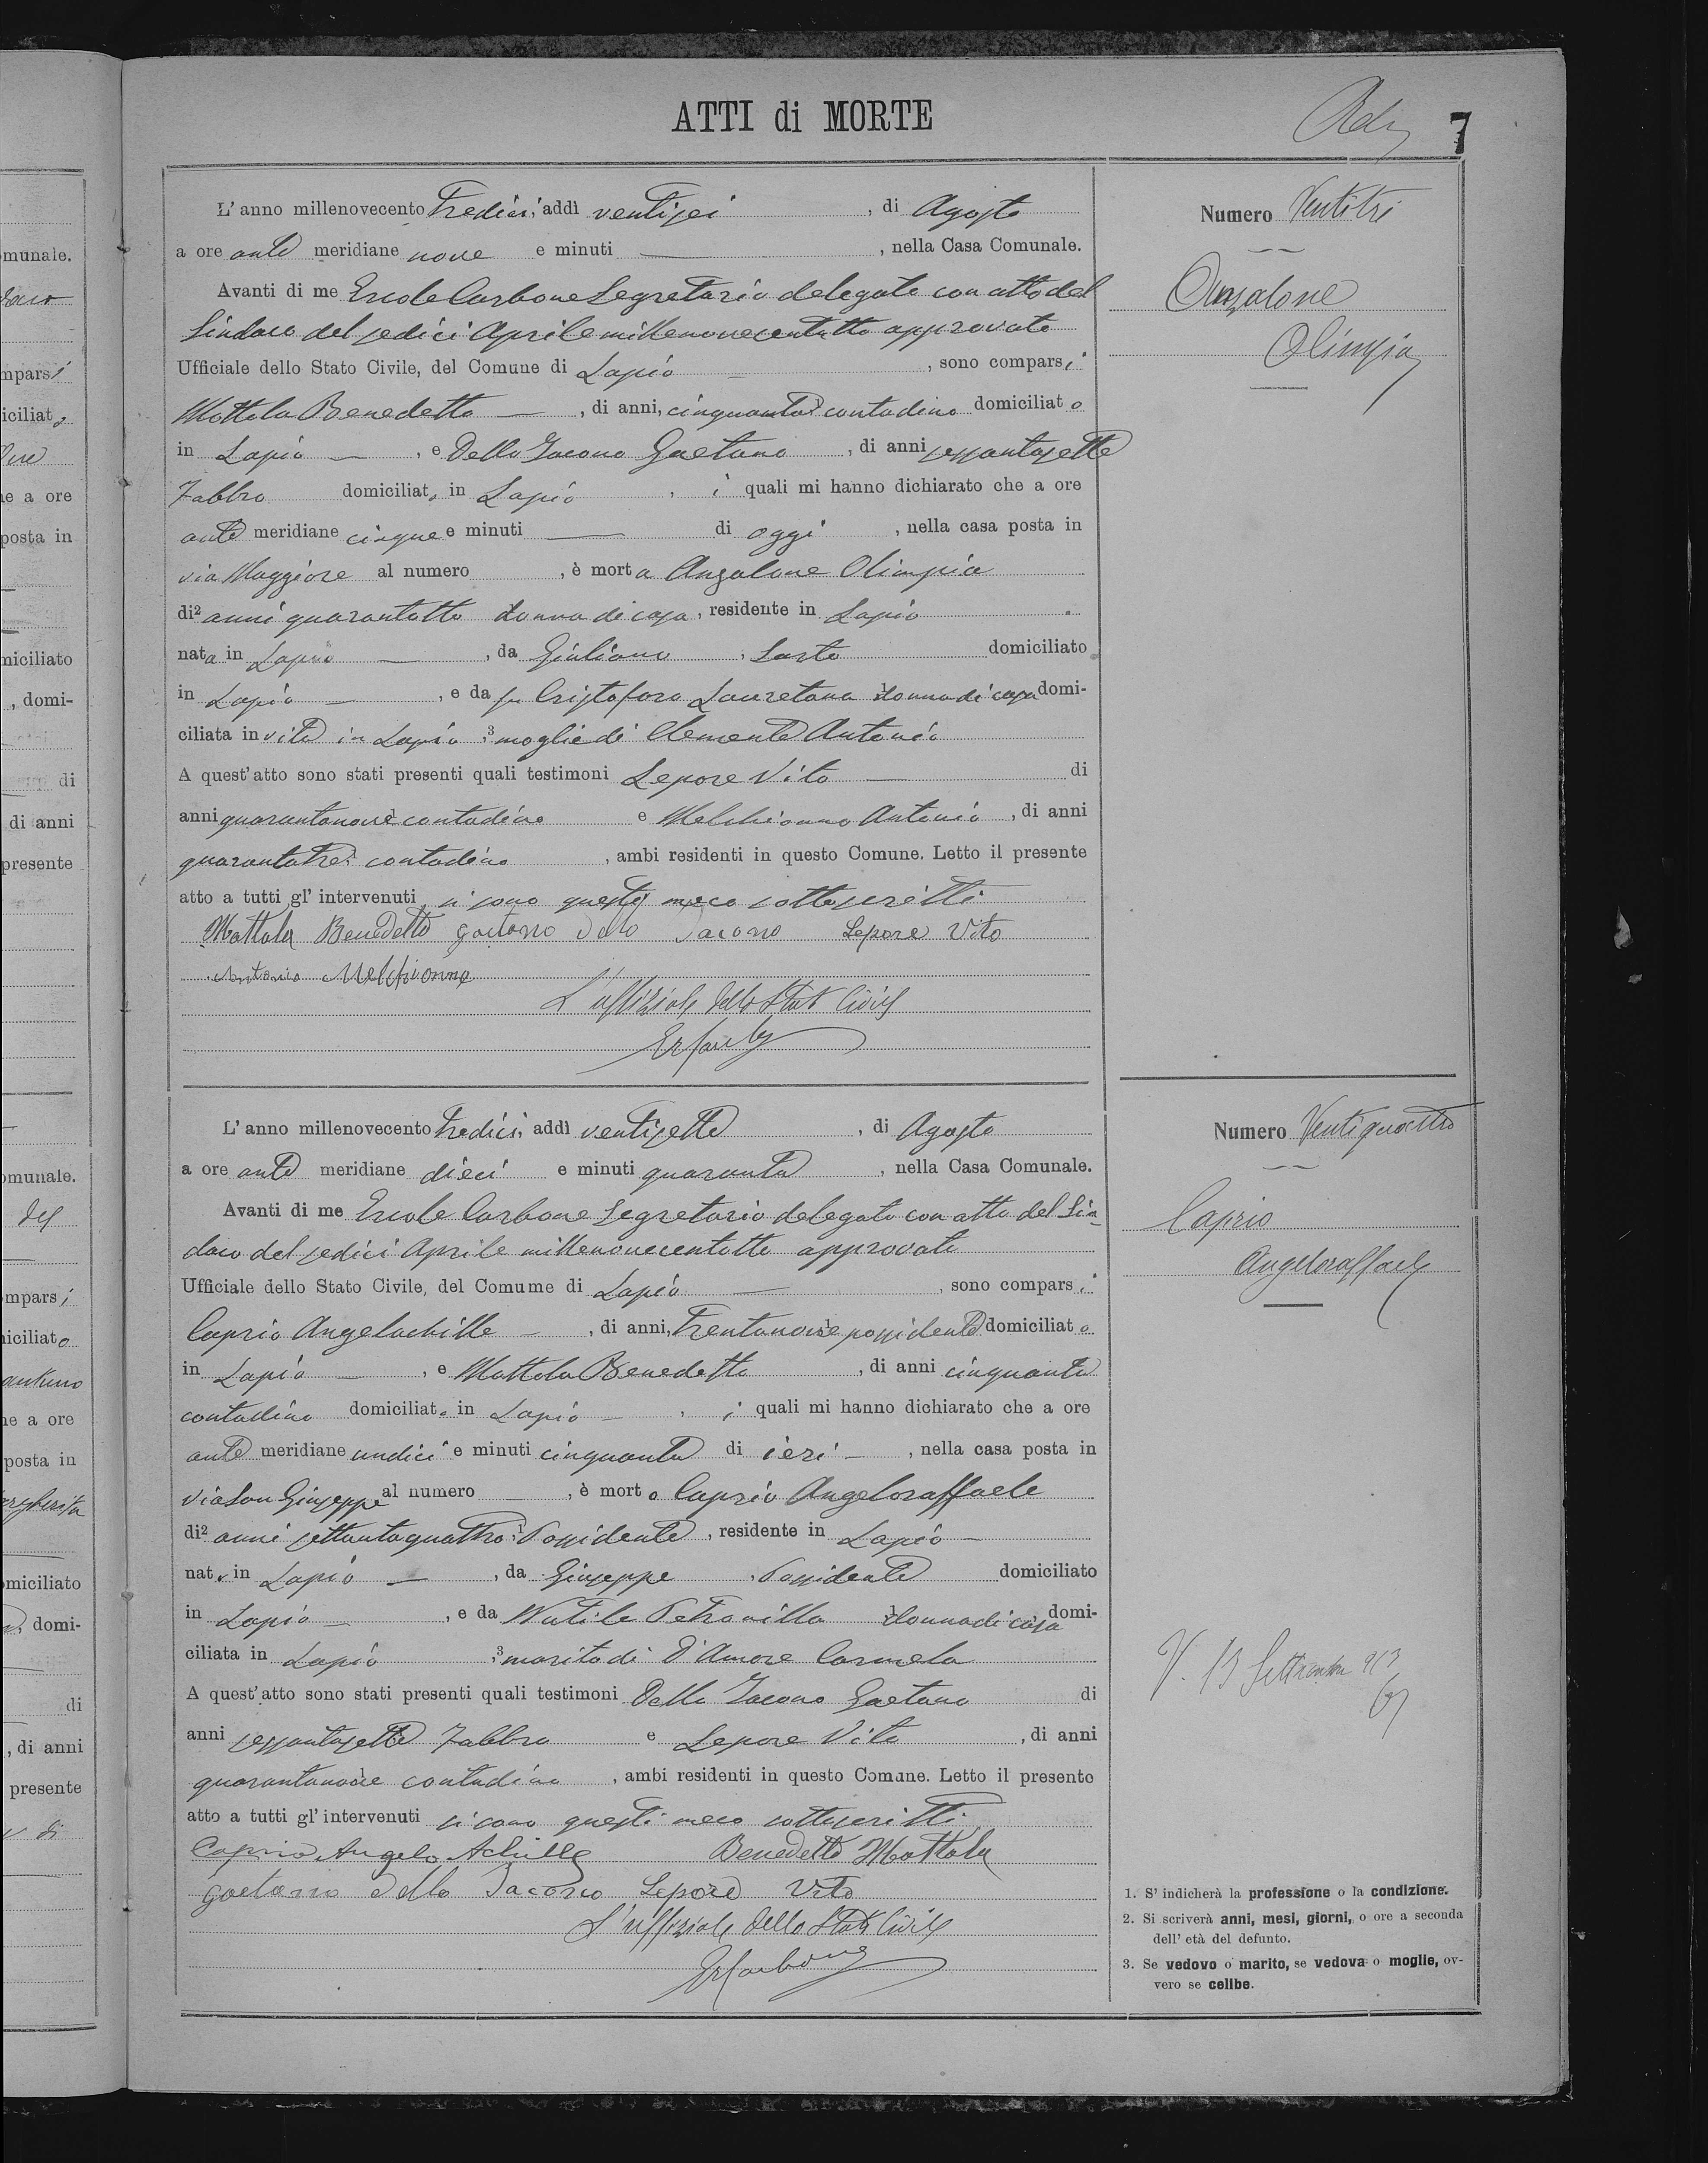 ATTI di MORTE
7
L'anno millenovecento tredici, addì ventisei, di Agosto
a ore ante meridiane nove e minuti —, nella Casa Comunale.
Avanti di me Ercole Carbone Segretario delegato con atto del
Sindaco del sedici Aprile millenovecentotto approvato
Ufficiale dello Stato Civile, del Comune di Lapio —, sono comparsi
Mottola Benedetto —, di anni, cinquanta contadino domiciliato
in Lapio —, e Dello Iacono Gaetano, di anni sessantasette
Fabbro domiciliato in Lapio, i quali mi hanno dichiarato che a ore
ante meridiane cinque e minuti — di oggi, nella casa posta in
via Maggiore al numero, è morta Anzalone Olimpia
di2 anni quarantotto donna di casa, residente in Lapio
nata in Lapio —, da Giuliano, Sarto domiciliato
in Lapio —, e da fu Cristofaro Lauretana donna di casa domi-
ciliata in vita in Lapio, 3 moglie di Clemente Antonio
A quest'atto sono stati presenti quali testimoni Lepore Vito — di
anni quarantanove contadino e Melchionno Antonio, di anni
quarantatre contadino, ambi residenti in questo Comune. Letto il presente
atto a tutti gl'intervenuti si sono questi meco sottoscritti
Mottola Benedetto Gaetano Dello Iacono Lepore Vito
Antonio Melchionno
L'uffiziale dello Stato Civile
Numero Ventitre
Anzalone
Olimpia
L'anno millenovecento tredici, addì ventisette, di Agosto
a ore ante meridiane dieci e minuti quaranta, nella Casa Comunale.
Avanti di me Ercole Carbone Segretario delegato con atto del Sin-
daco del sedici Aprile millenovecentotto approvato
Ufficiale dello Stato Civile, del Comume di Lapio —, sono comparsi
Caprio Angelachille —, di anni, trentanove possidente domiciliato
in Lapio —, e Mottola Benedetto, di anni cinquanta
contadino domiciliato in Lapio —, i quali mi hanno dichiarato che a ore
ante meridiane undici e minuti cinquanta di ieri —, nella casa posta in
via San Giuseppe al numero —, è morto Caprio Angeloraffaele
di2 anni settantaquattro, 1 Possidente, residente in Lapio —
nato in Lapio —, da Giuseppe, Possidente domiciliato
in Lapio —, e da Nutile Petronilla 1 donna di casa domi-
ciliata in Lapio, 3 marito di D'Amore Carmela
A quest'atto sono stati presenti quali testimoni Dello Iacono Gaetano di
anni sessantasette Fabbro e Lepore Vito, di anni
quarantanove contadino, ambi residenti in questo Comune. Letto il presento
atto a tutti gl'intervenuti si sono questi meco sottoscritti
Caprio Angelo Achille Benedetto Mottola
Gaetano Dello Iacono Lepore Vito
L'uffiziale dello Stato Civile
ErCarbone
Numero Ventiquattro
Caprio
Angeloraffaele
V. 13 Settembre 913
1. S'indicherà la professione o la condizione.
2. Si scriverà anni, mesi, giorni, o ore a seconda
dell'età del defunto.
3. Se vedovo o marito, se vedova o moglie, ov-
vero se celibe.